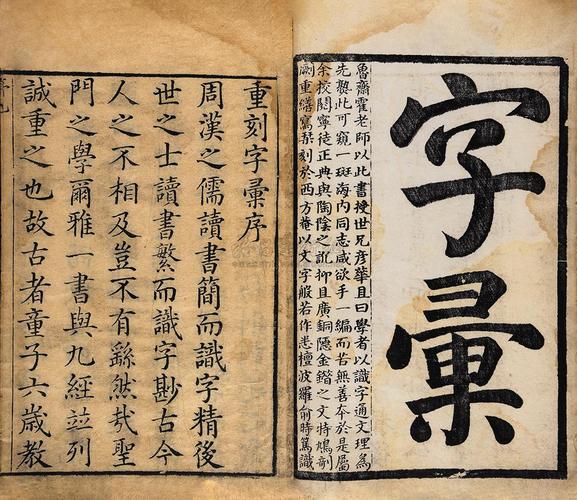 字彙
魯齋霍老師以此書授世兄彥華且曰學者以識字通文理為
先檠此可窺一斑海內同志咸欲手一編而苦無善本於是屬
余校閱寧徒正典與陶陰之訛抑且廣銅隱金鍇之文特鳩剞
劂重繕寫梨刻於西方菴以文字般若作悉檀波羅俞時篤識
重刻字彙序
周漢之儒讀書簡而識字精後
世之士讀書繁而識字尠古今
人之不相及豈不有繇然哉聖
門之學爾雅一書與九經並列
誠重之也故古者童子六歲教